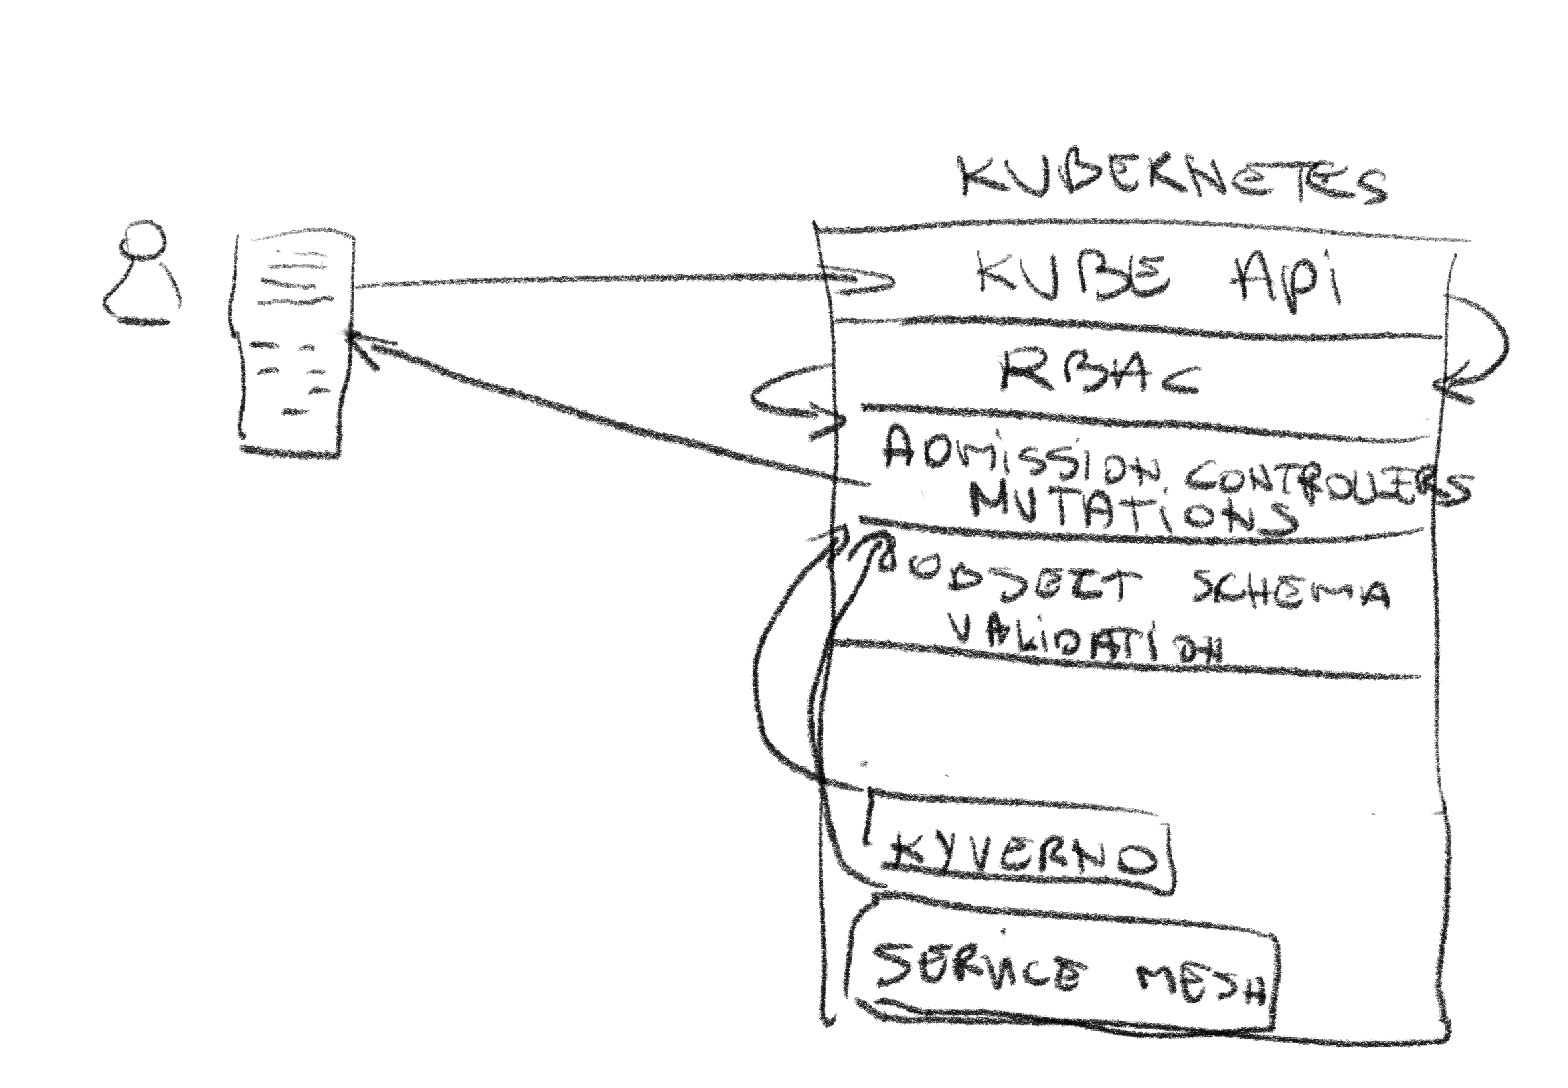 KUBERNETES
KUBE Api
RBAC
ADMISSION CONTROLLERS
MUTATIONS
OBJECT SCHEMA
VALIDATION
KYVERNO
SERVICE MESH